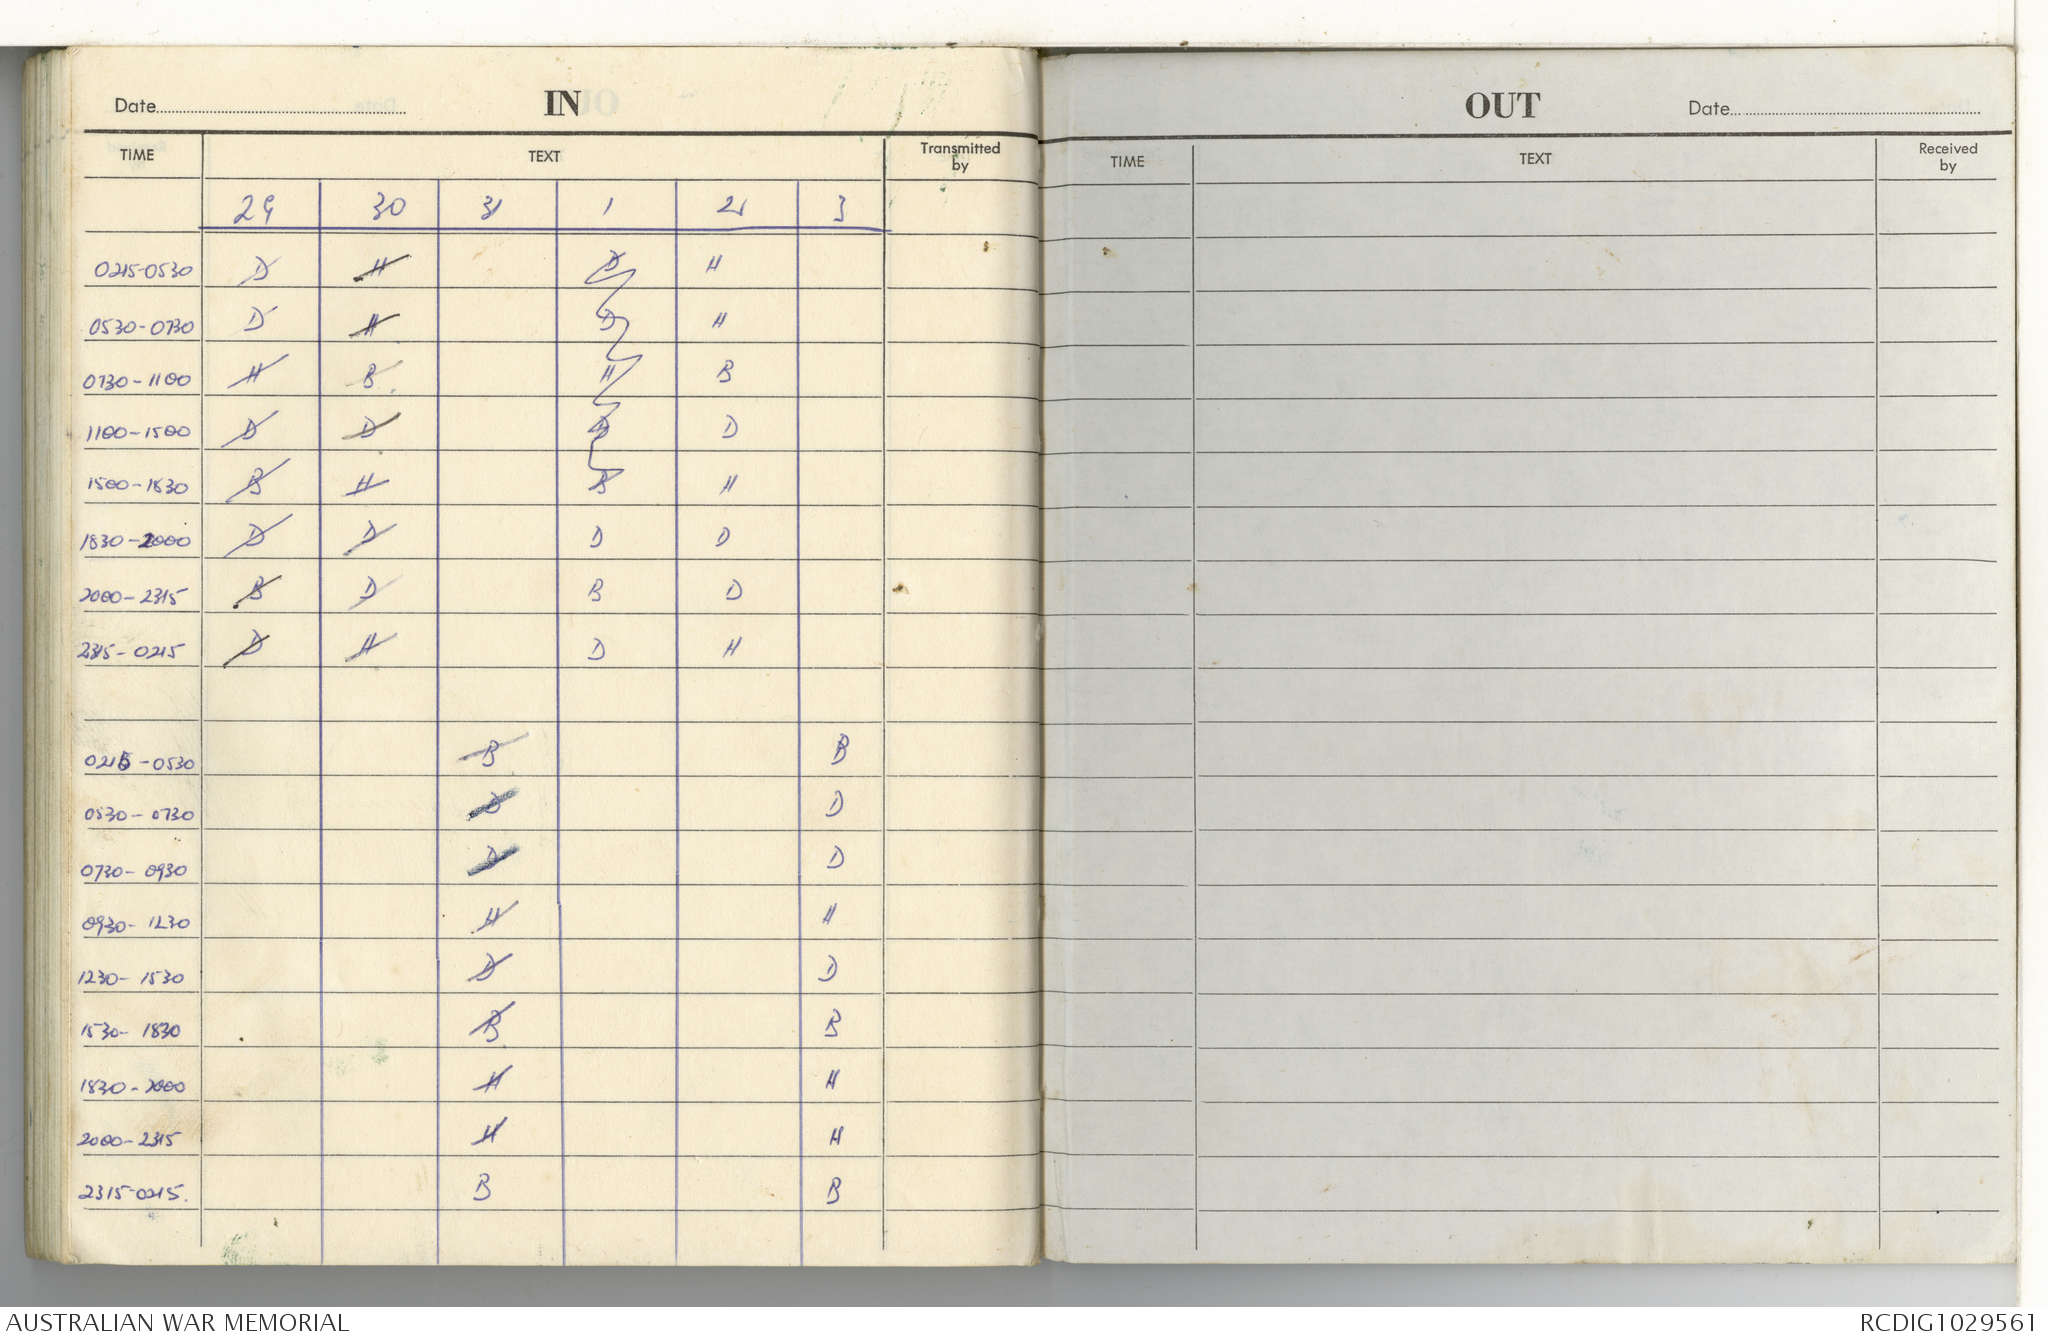 Date
IN
TIME
TEXT
Transmitted by
29 30 31 1 2 3
0215-0530 D H D H
0530-0730 D H D H
0730-1100 H B H B
1100-1500 D D D D
1500-1830 B H B H
1830-2000 D D D D
2000-2315 B D B D
2315-0215 D H D H
0215-0530 B B
0530-0730 D D
0730-0930 D D
0930-1230 H H
1230-1530 D D
1530-1830 B B
1830-2000 H H
2000-2315 H H
2315-0215. B B
OUT
Date
TIME
TEXT
Received by
AUSTRALIAN WAR MEMORIAL
RCDIG1029561